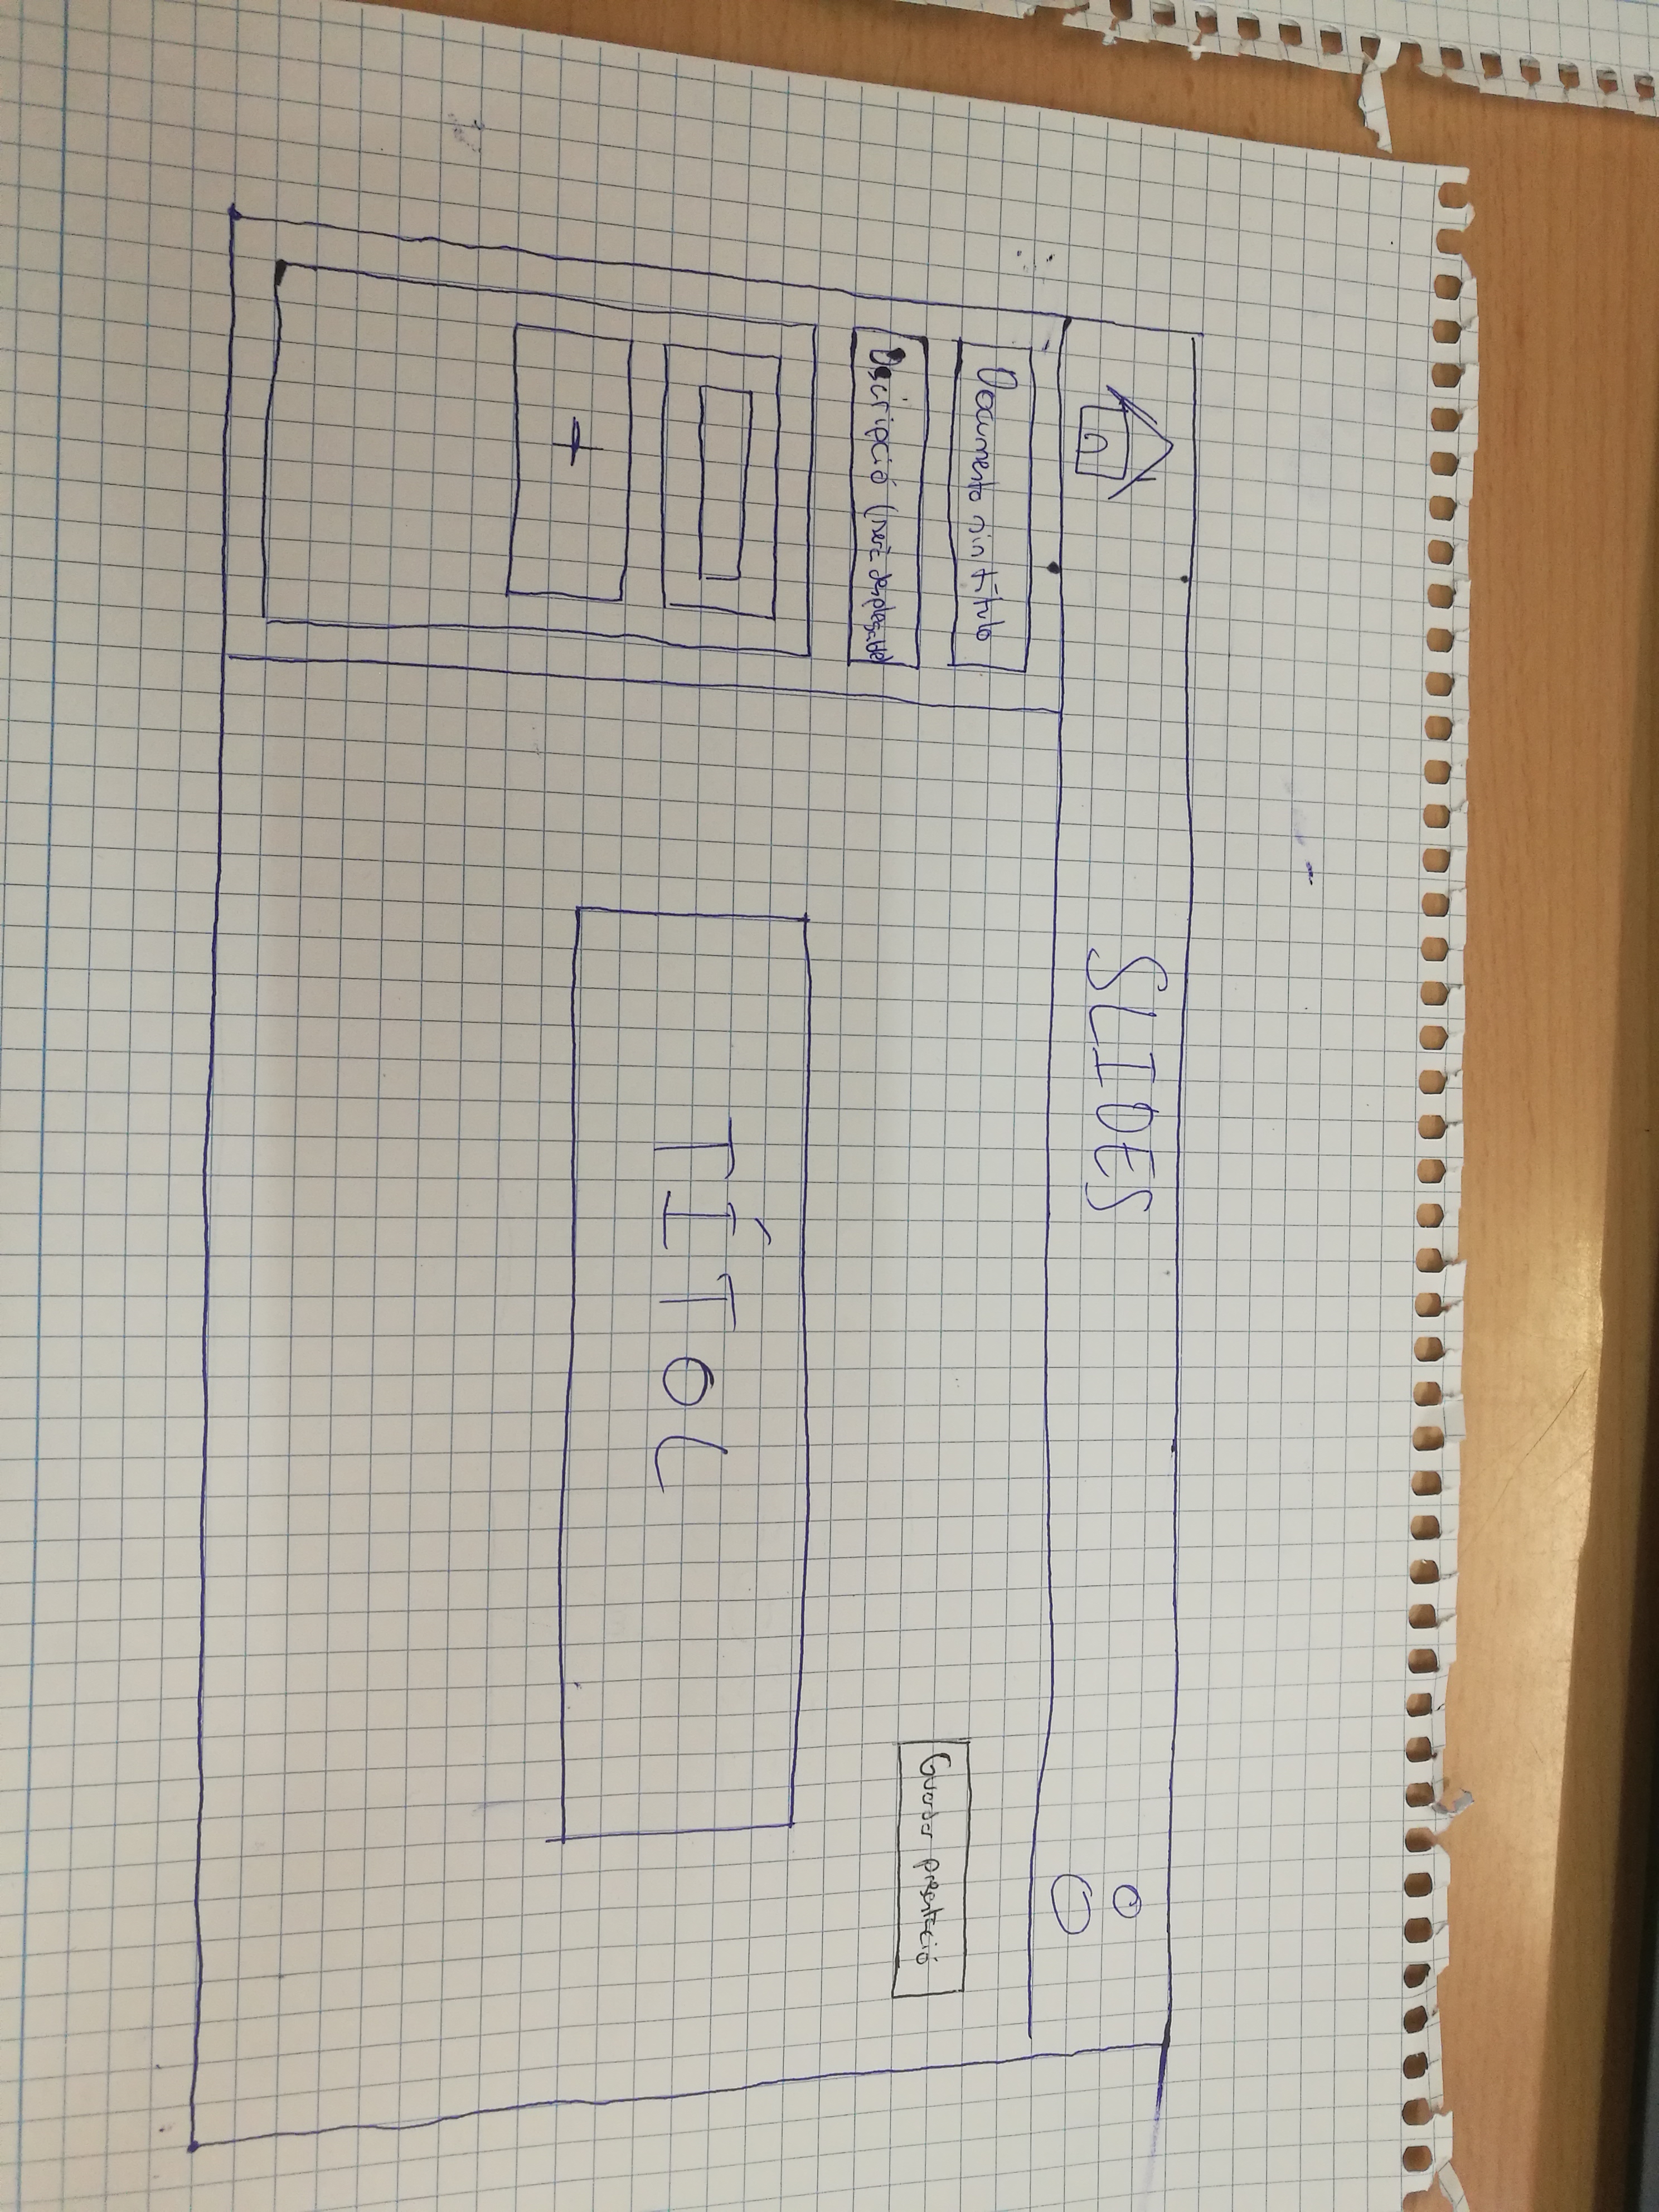 SLIDES
Documento sin título
Descripció (serà desplegable)
Guardar presentació
+
TÍTOL